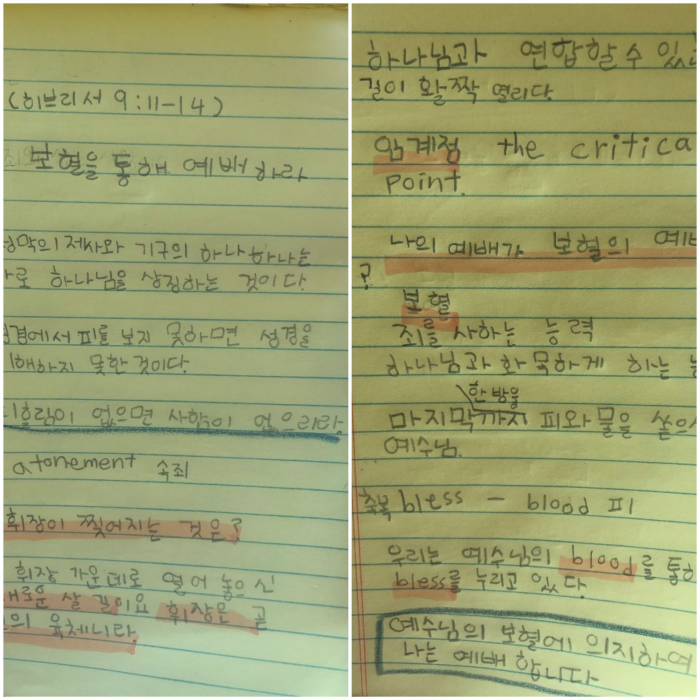 (히브리서 9:11-14)
보혈을 통해 예배하라
제사와 기구의 하나하나는
하나님을 상징하는 것이다.
피를 보지 못하면 성경을
못한것이다.
없으면 사함이 없으리라.
atonement 속죄
휘장이 찢어지는 것은?
휘장 가운데로 열어 놓으신
살 길이요 휘장은 곧
육체니라.
하나님과 연합할 수
길이 활짝 열리다.
임계점 the critica
point.
나의 예배가 보혈의
?
보혈
죄를 사하는 능력
하나님과 화목하게 하는
한 방울
마지막까지 피와 물을
예수님.
축복 bless - blood 피
우리는 예수님의 blood를
bless를 누리고 있다.
예수님의 보혈에 의지하여
나는 예배합니다